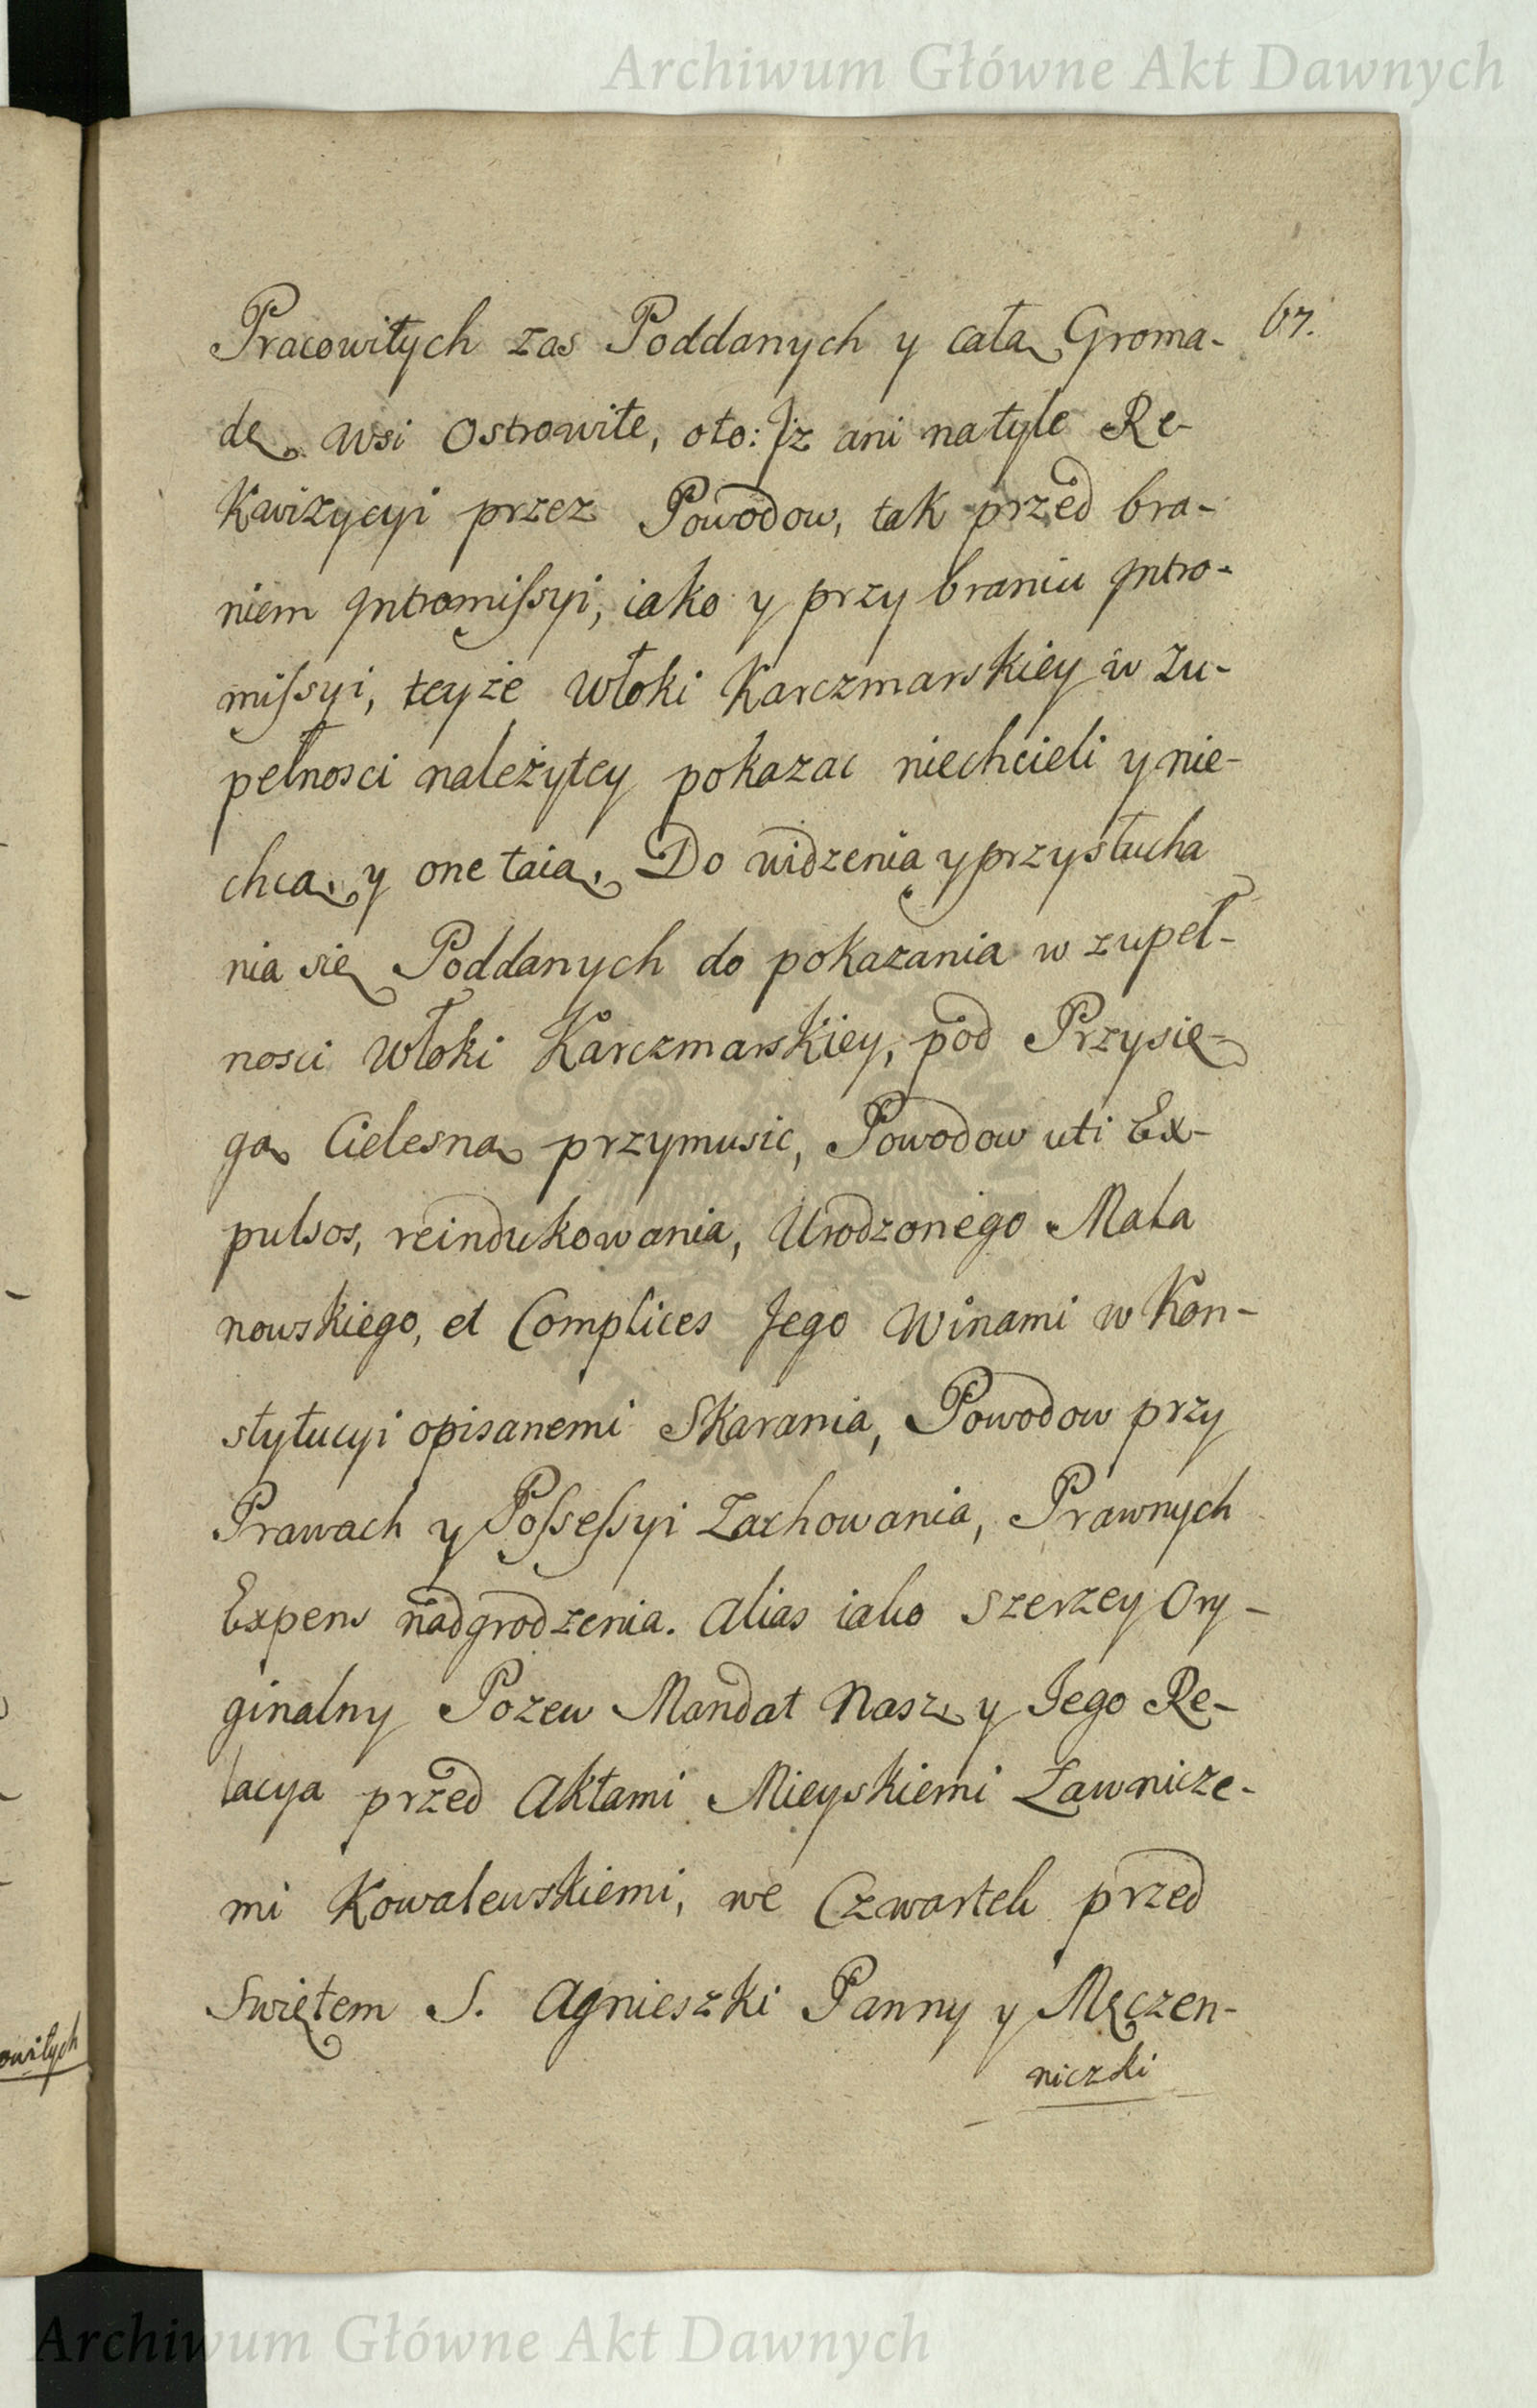 Archiwum Główne Akt Dawnych
67.
Pracowitych zas Poddanych y całą Groma-
dę wsi Ostrowite, oto: Jż ani natyle Re-
kwizycyi przez Powodow, tak przed bra-
niem Intromissyi, iako y przy braniu Intro-
missyi, teyże Włoki Karczmarskiey w Zu-
pełnosci należytey pokazac niechcieli y nie-
chcą, y one taią. Do widzenia y przysłucha
nia się Poddanych do pokazania w zupeł-
nosci Włoki Karczmarskiey, pod Przysię-
gą Cielesną przymusic, Powodow uti Ex-
pulsos, reindukowania, Urodzonego Mala
nowskiego, et Complices Jego Winami w Kon-
stytucyi opisanemi Skarania, Powodow przy
Prawach y Possessyi Zachowania, Prawnych
Expens nadgrodzenia. Alias iako szerzey Ory-
ginalny Pozew Mandat Nasz, y Jego Re-
lacya przed Aktami Mieyskiemi Ławnicze-
mi Kowalewskiemi, we Czwartek przed
Swiętem S. Agnieszki Panny y Męczen-
niczki
owitych
Archiwum Główne Akt Dawnych